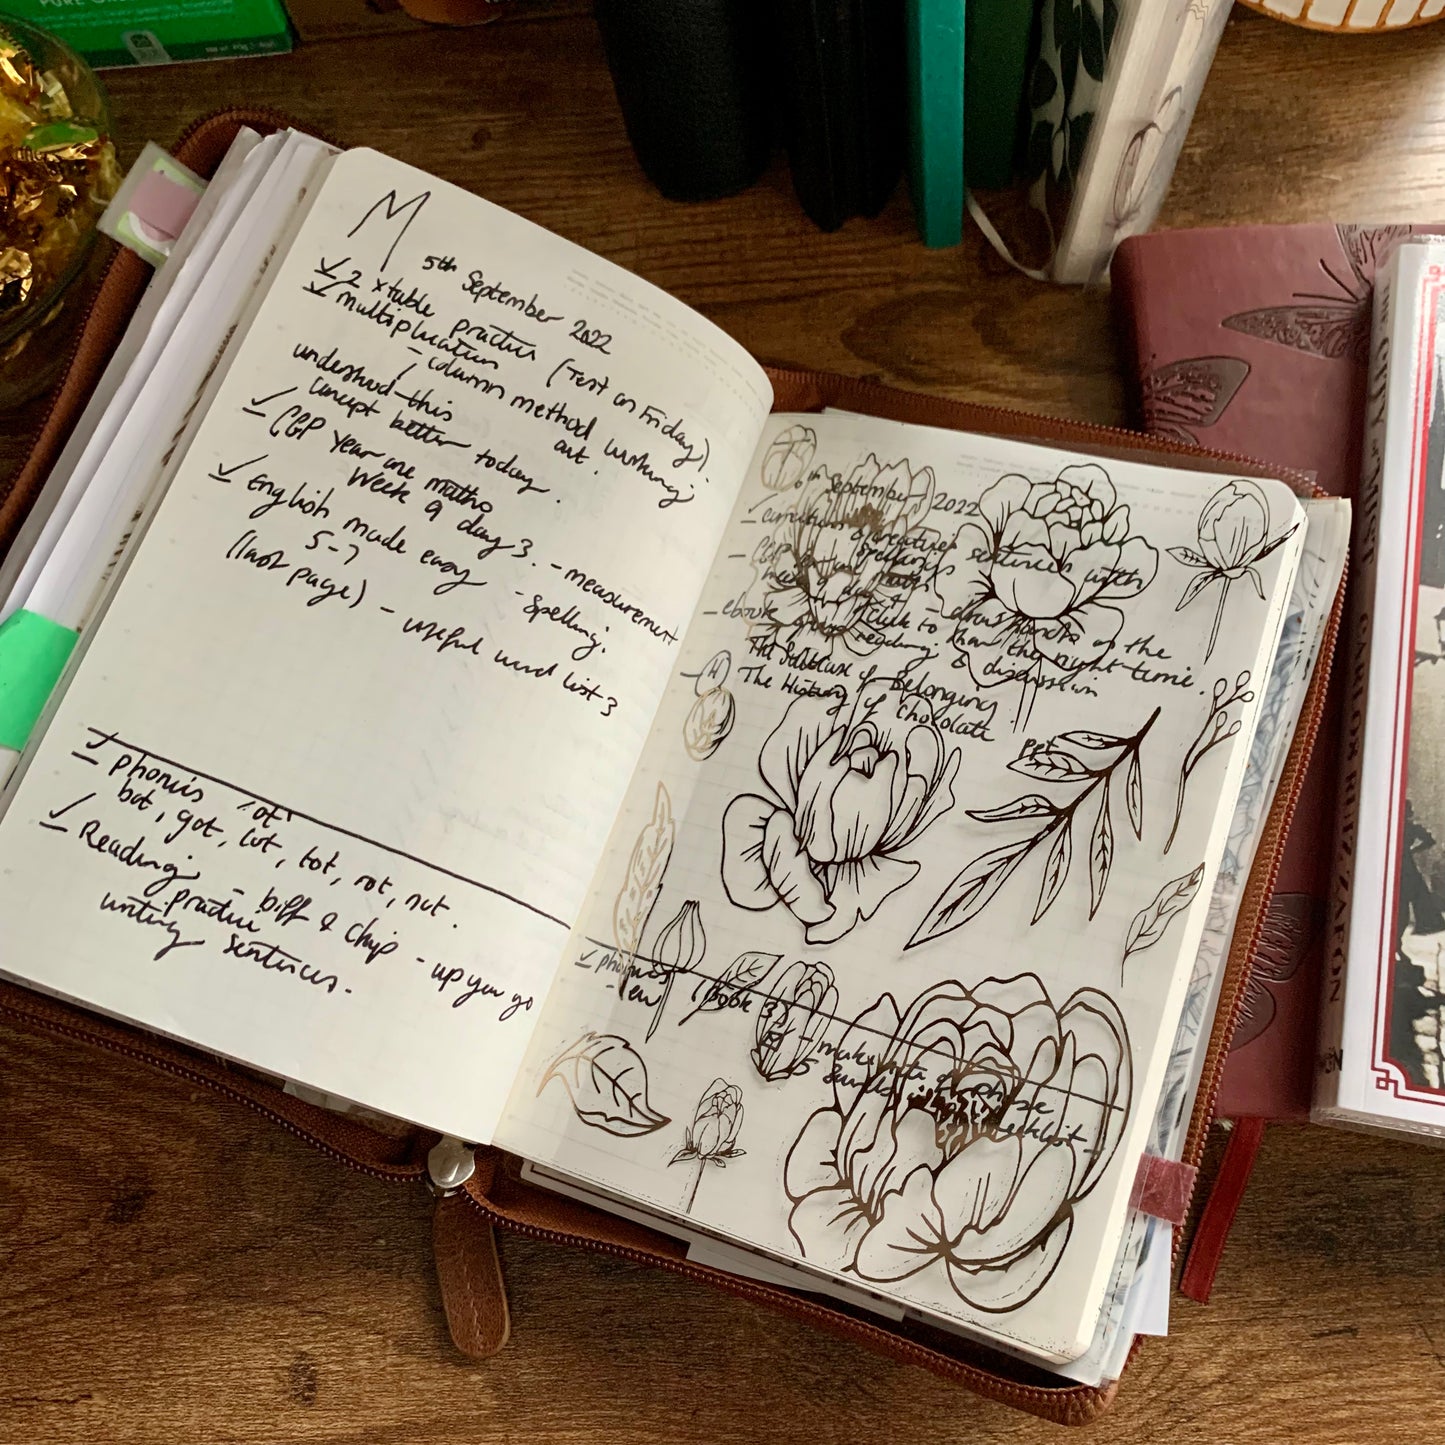 M
5th September 2022
2 x table practice (Test on Friday)
multiplication
- column method working
out.
understood this
concept better today.
CGP Year one maths
Week 9 day 3. - measurement
English made easy - Spelling.
5-7
(last page) - useful word list 3
phonics 'ot'
bot, got, lot, tot, rot, not.
Reading - biff & chip - up you go
practice
writing sentences.
6th September 2022
creative sentences with
spellings
CGP maths
- draw hands on the
clock to show the right time.
group reading & discussion
of Belonging
The History of Chocolate
PPT
phonics
(book 3)
- make
5
checklist
THE CITY OF MIST
CARLOS RUIZ ZAFON
W&N